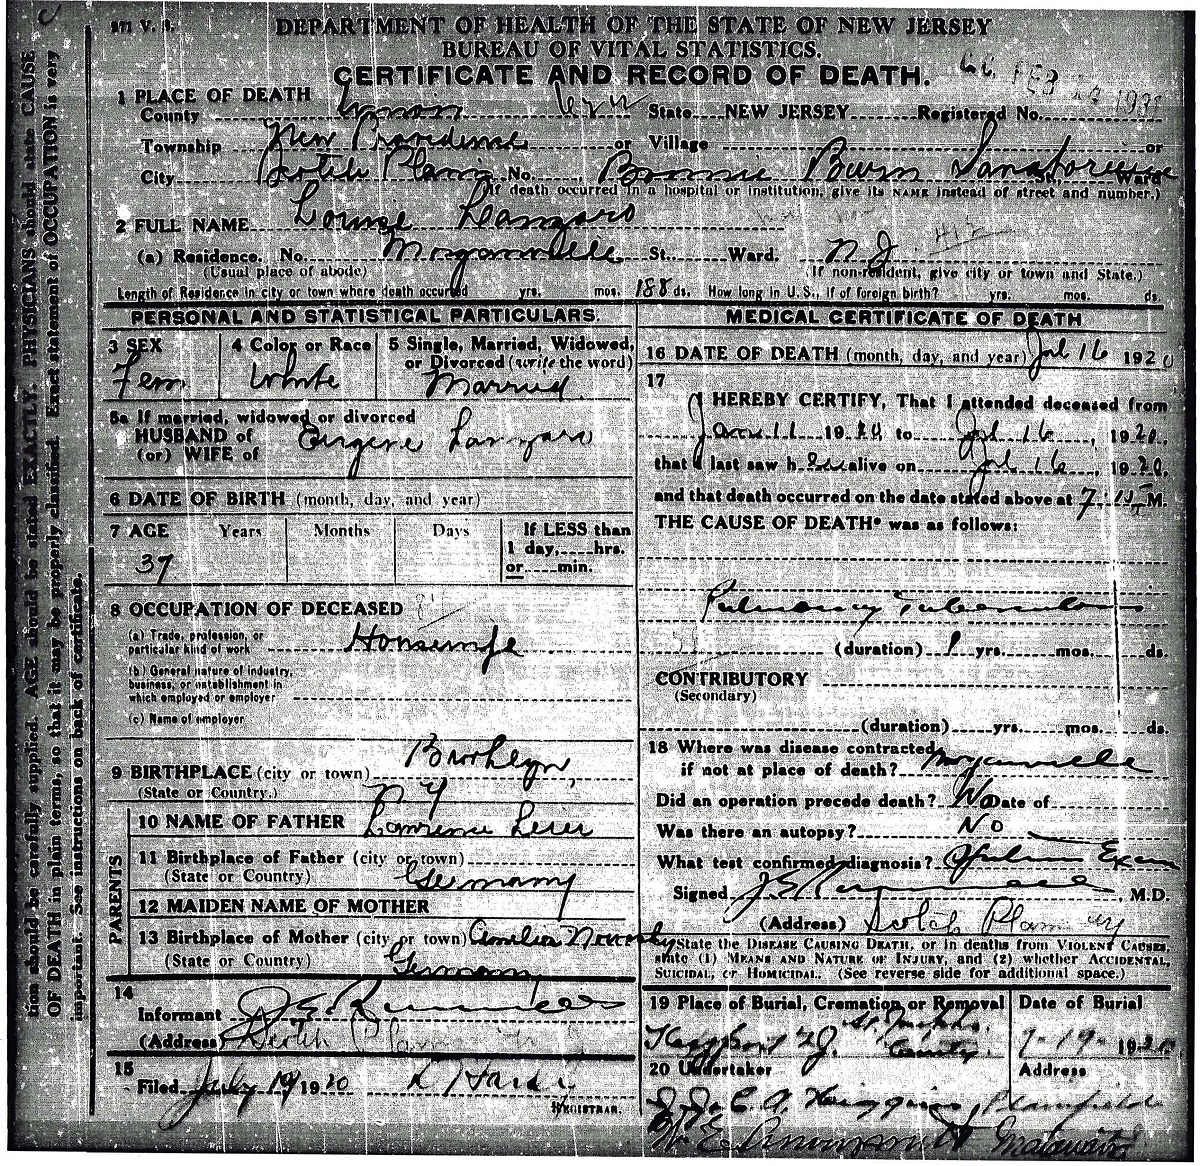 BTI V. S.
DEPARTMENT OF HEALTH OF THE STATE OF NEW JERSEY
BUREAU OF VITAL STATISTICS.
CERTIFICATE AND RECORD OF DEATH.
FEB 24
1 PLACE OF DEATH
County Union State NEW JERSEY Registered No.
Township New Providence or Village or
City Scotch Plains No. Bonnie Burn Sanatorium Ward
(If death occurred in a hospital or institution, give its NAME instead of street and number.)
2 FULL NAME Louise Lanzaro
(a) Residence. No. Morganville St. Ward. N.J.
(Usual place of abode) (If non-resident, give city or town and State.)
Length of Residence in city or town where death occurred yrs. mos. 188 ds. How long in U.S., if of foreign birth? yrs. mos. ds.
PERSONAL AND STATISTICAL PARTICULARS.
3 SEX Fem
4 Color or Race White
5 Single, Married, Widowed, or Divorced (write the word) Married
5a If married, widowed or divorced
HUSBAND of
(or) WIFE of Eugene Lanzaro
6 DATE OF BIRTH (month, day, and year)
7 AGE Years Months Days If LESS than
1 day,....hrs.
or.....min.
37
8 OCCUPATION OF DECEASED
(a) Trade, profession, or
particular kind of work Housewife
(b) General nature of industry,
business, or establishment in
which employed or employer
(c) Name of employer
9 BIRTHPLACE (city or town) Brooklyn,
(State or Country.) N Y
PARENTS
10 NAME OF FATHER Lawrence
11 Birthplace of Father (city or town)
(State or Country) Germany
12 MAIDEN NAME OF MOTHER
13 Birthplace of Mother (city or town) Amelia
(State or Country) Germany
14
Informant
(Address) Scotch Plains
15
Filed July 19 1920
REGISTRAR.
MEDICAL CERTIFICATE OF DEATH
16 DATE OF DEATH (month, day, and year) Jul 16 1920
17
I HEREBY CERTIFY, That I attended deceased from
Jan 11 1920 to Jul 16, 1920.
that I last saw her alive on Jul 16, 1920.
and that death occurred on the date stated above at M.
THE CAUSE OF DEATH* was as follows:
Pulmonary Tuberculosis
(duration) 1 yrs. mos. ds.
CONTRIBUTORY
(Secondary)
(duration) yrs. mos. ds.
18 Where was disease contracted
if not at place of death? Morganville
Did an operation precede death? No Date of
Was there an autopsy? No
What test confirmed diagnosis? Sputum Exam
Signed M.D.
(Address) Scotch Plains
*State the DISEASE CAUSING DEATH, or in deaths from VIOLENT CAUSES,
state (1) MEANS AND NATURE OF INJURY, and (2) whether ACCIDENTAL,
SUICIDAL, or HOMICIDAL. (See reverse side for additional space.)
19 Place of Burial, Cremation or Removal Date of Burial
Keyport NJ. County 7-19- 1920
20 Undertaker Address
Higgins, Plainfield
Matawan
tion should be carefully supplied. AGE should be stated EXACTLY. PHYSICIANS should state CAUSE
OF DEATH in plain terms, so that it may be properly classified. Exact statement of OCCUPATION is very
important. See instructions on back of certificate.